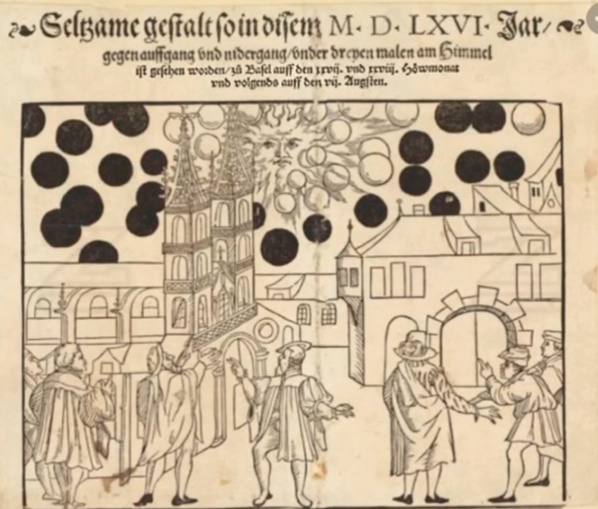 Seltzame gestalt so in disem M. D. LXVI. Jar/
gegen auffgang vnd nidergang/vnder dreyen malen am Himmel
ist gesehen worden/zů Basel auff den xxvij. vnd xxviij. Höwmonat
vnd volgends auff den vij. Augsten.